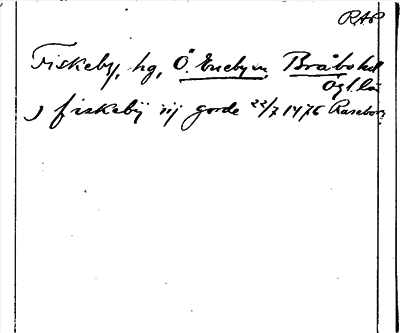 RAP
Fiskeby, hg, Ö. Eneby sn, Bråbo hd
Ögl. län
J fiskebÿ iij gorde 22/7 1476 Raseborg